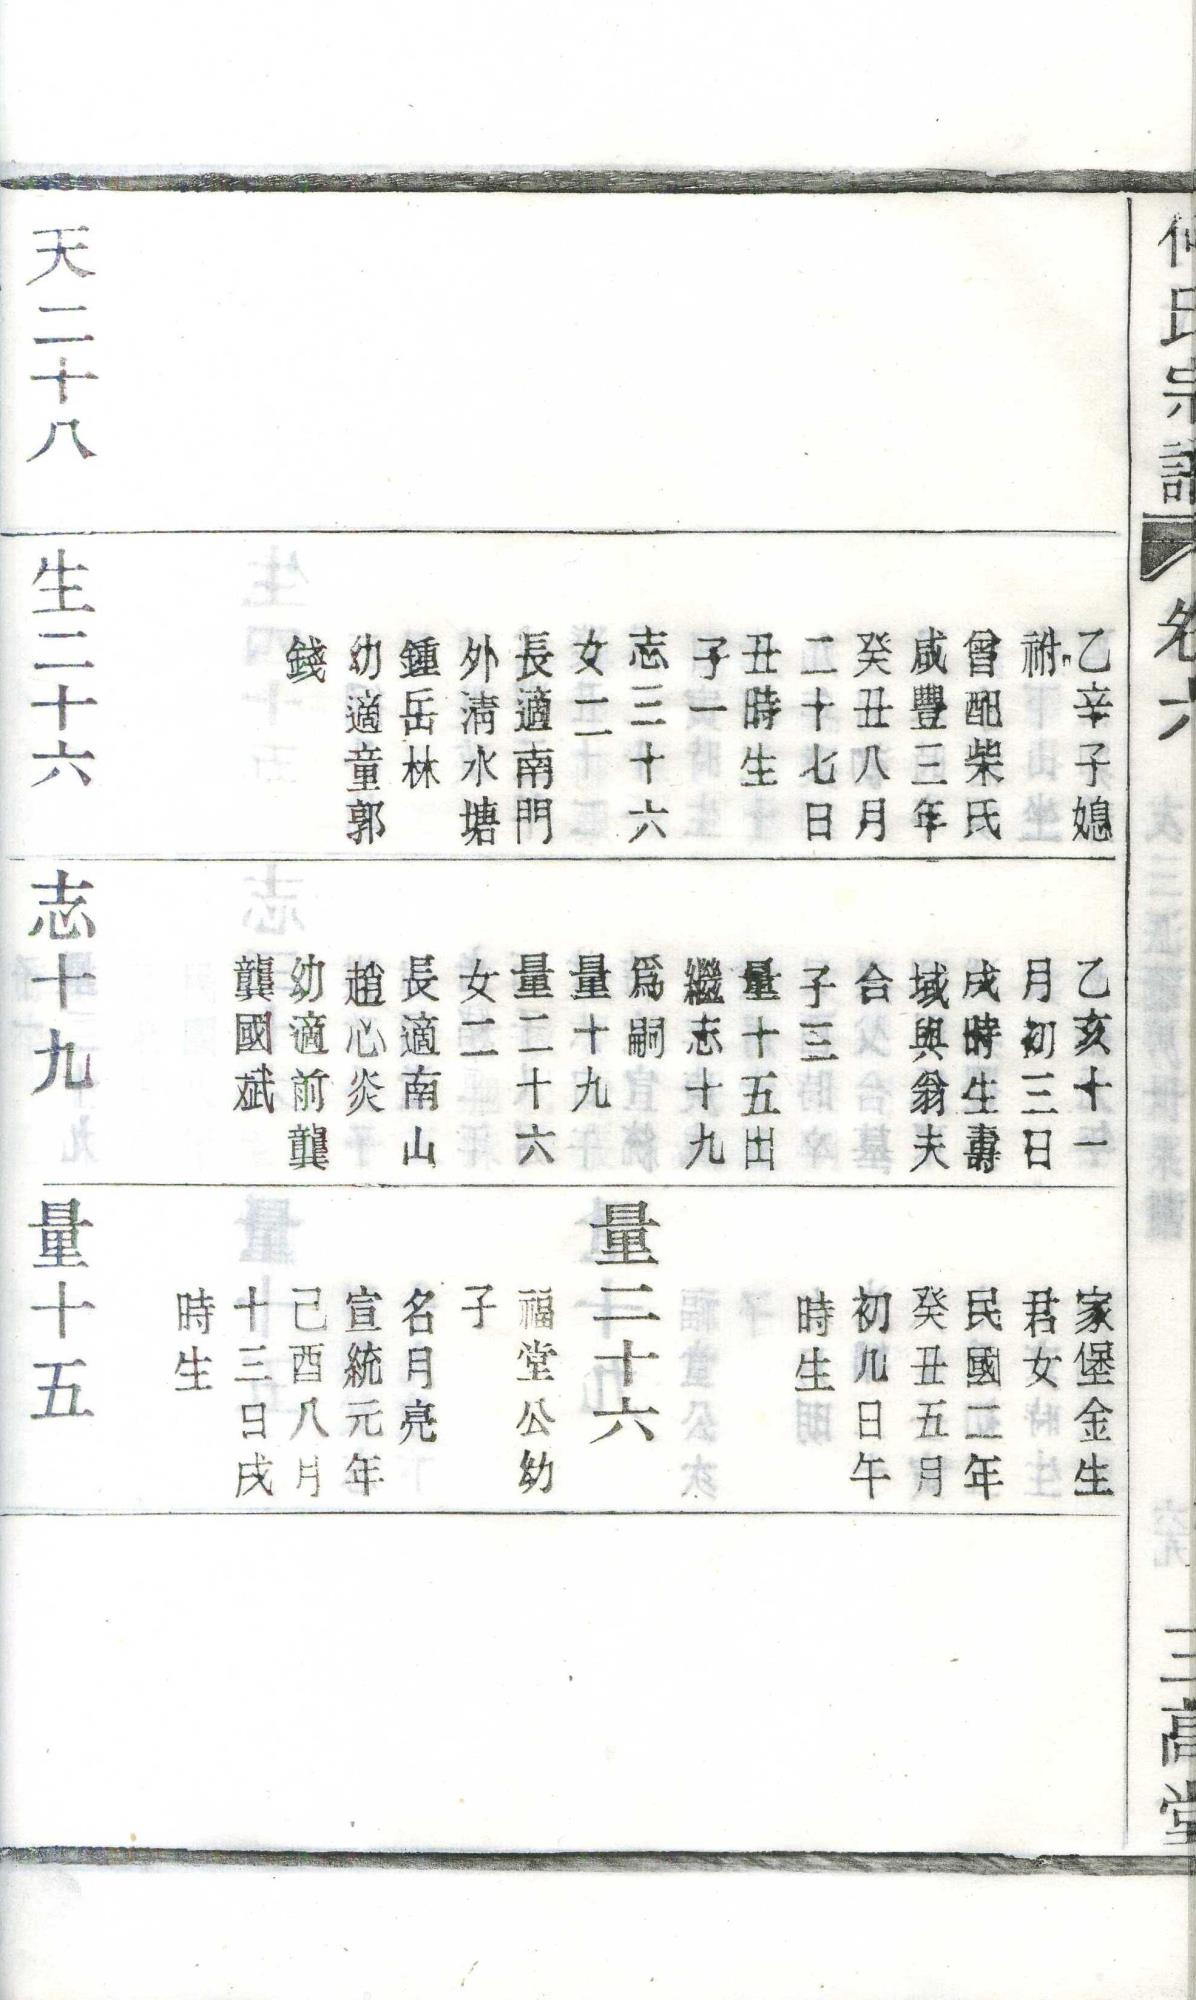 何氏宗譜
卷六
三高堂
乙辛子媳
祔
曾配柴氏
咸豐三年
癸丑八月
二十七日
丑時生
子一
志三十六
女二
長適南門
外清水塘
鍾岳林
幼適童郭
錢
乙亥十一
月初三日
戌時生壽
域與翁夫
合
子三
量十五出
繼志十九
爲嗣
量十九
量二十六
女二
長適南山
趙心炎
幼適前龔
龔國斌
家堡金生
君女
民國二年
癸丑五月
初九日午
時生
量二十六
福堂公幼
子
名月亮
宣統元年
己酉八月
十三日戌
時生
天二十八
生二十六
志十九
量十五